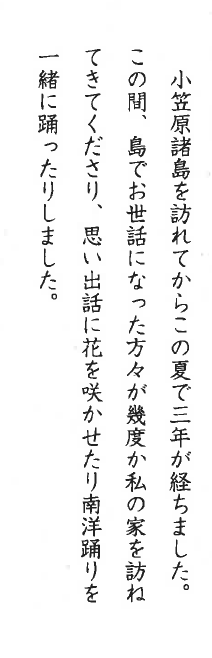 小笠原諸島を訪れてからこの夏で三年が経ちました。
この間、島でお世話になった方々が幾度か私の家を訪ね
てきてくださり、思い出話に花を咲かせたり南洋踊りを
一緒に踊ったりしました。